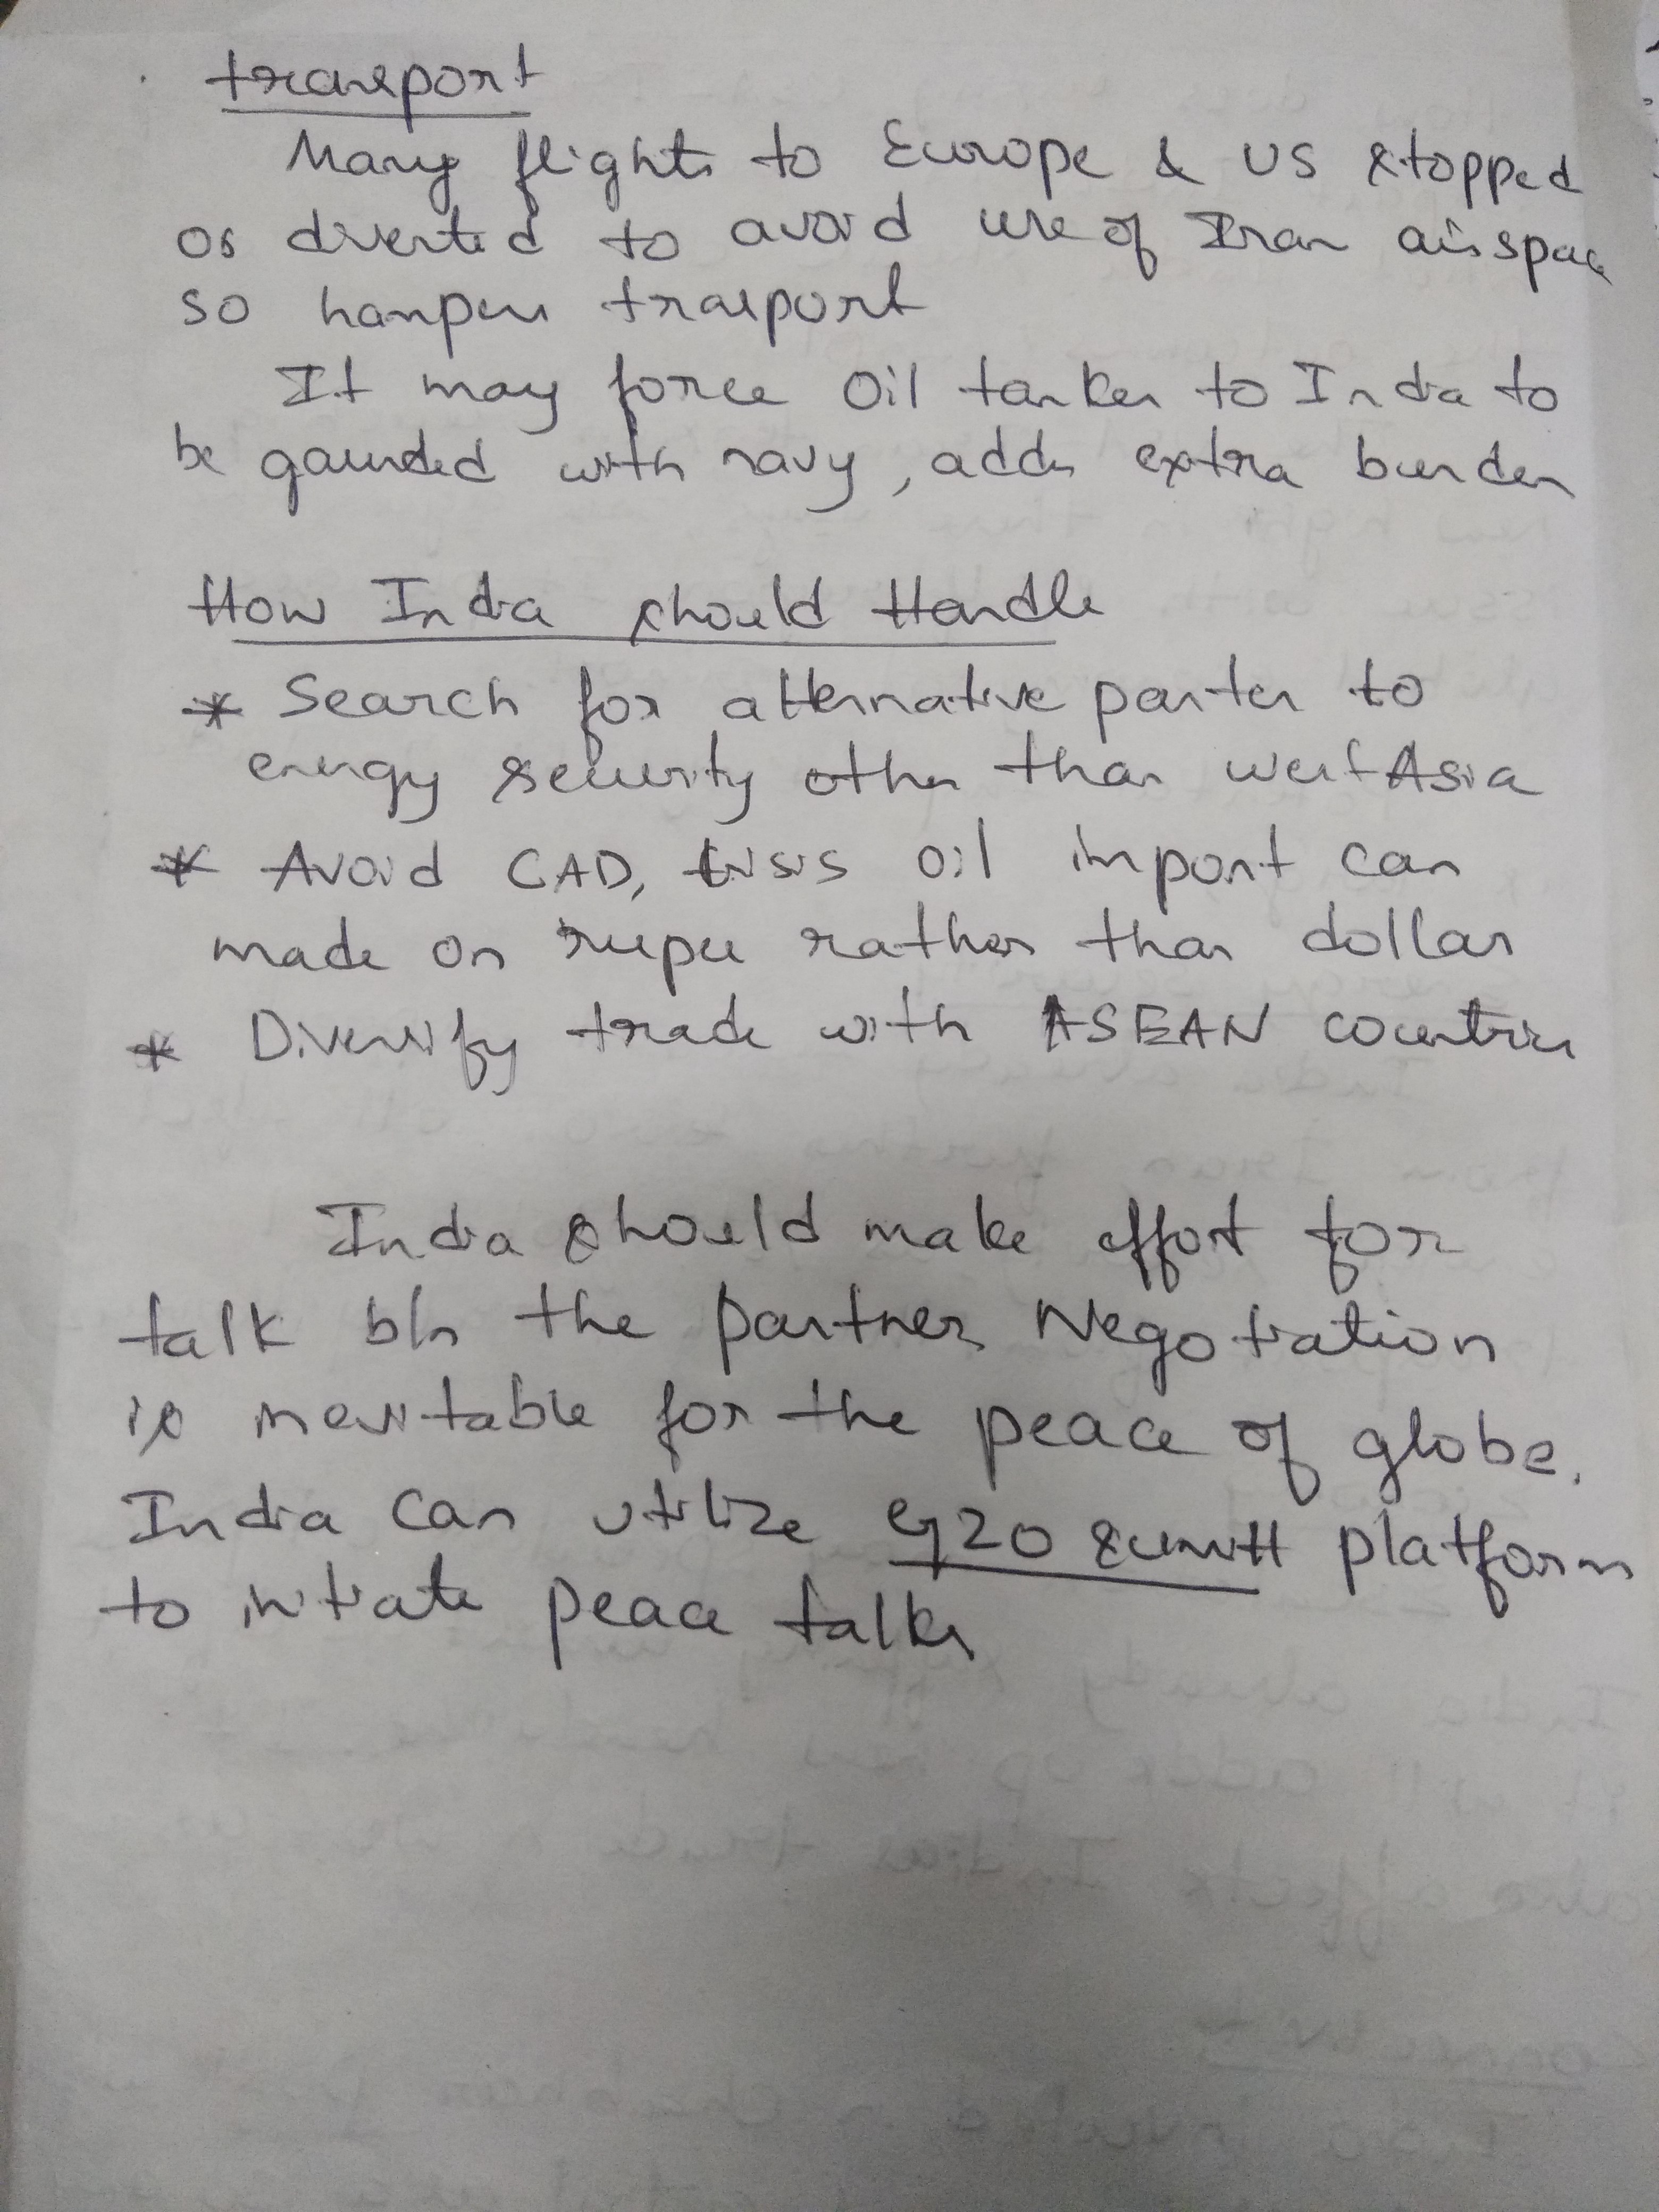 transport
Many flights to Europe & US stopped
or diverted to avoid use of Iran airspace
so hampers trasport
It may force oil tanker to India to
be gaurded with navy, adds extra burden
How India should Handle
* Search for alternative parter to
energy security other than west Asia
* Avoid CAD, crisis oil import can
made on rupee rather than dollar
* Diversify trade with ASEAN countries
India should make effort for
talk b/n the partners Negotiation
is inevitable for the peace of globe.
India can utilize G20 summit platform
to initiate peace talks